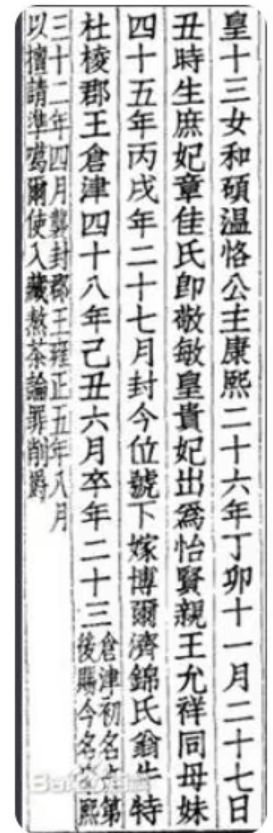 皇十三女和碩溫恪公主康熙二十六年丁卯十一月二十七日
丑時生庶妃章佳氏卽敬敏皇貴妃出爲怡賢親王允祥同母妹
四十五年丙戌年二十七月封今位號下嫁博爾濟錦氏翁牛特
杜棱郡王倉津四十八年己丑六月卒年二十三
倉津初名第
後賜今名熙
三十二年四月襲封郡王雍正五年八月
以擅請準噶爾使入藏熬茶論罪削爵